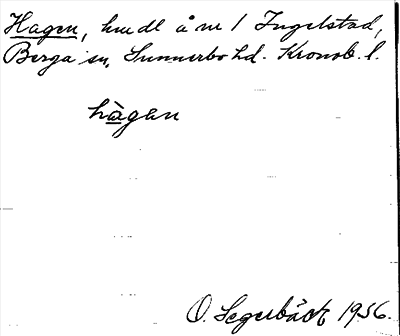 Hagen, hmdl å nr 1 Ingelstad,
Berga sn, Sunnerbo hd. Kronob. l.
hàgan
O. Segerbäck 1956.